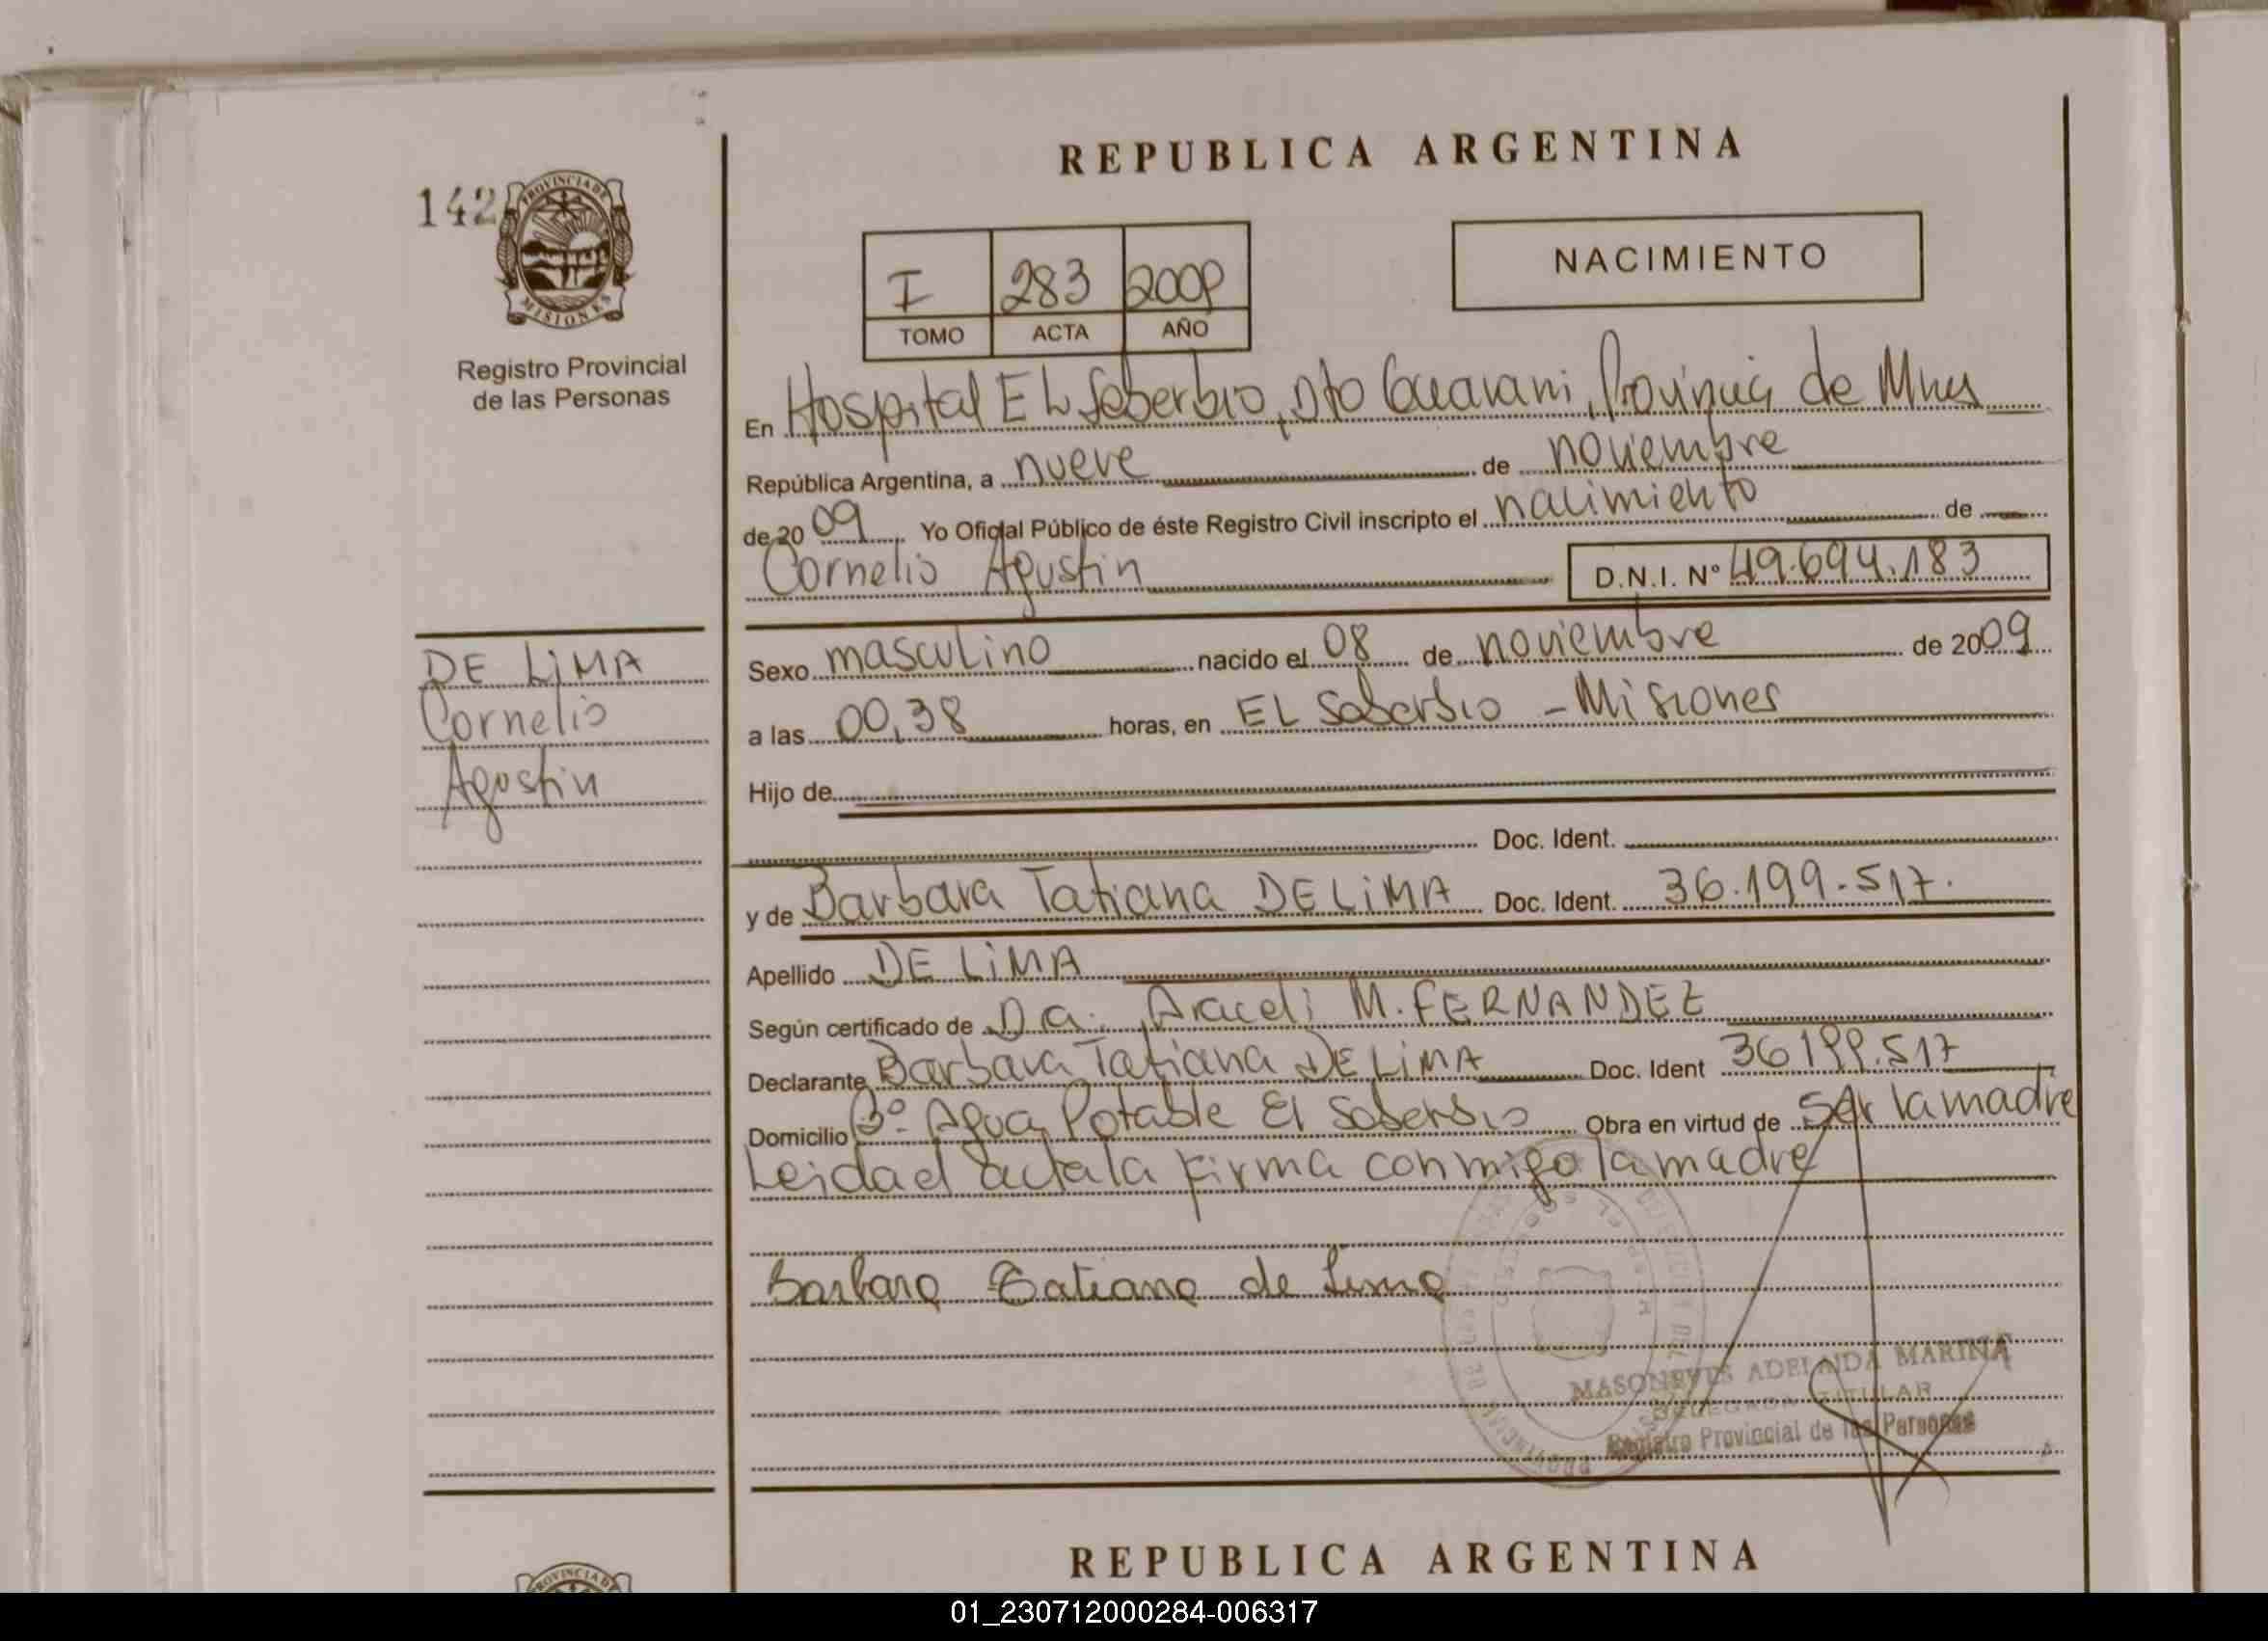 REPUBLICA ARGENTINA
142
PROVINCIA DE
MISIONES
Registro Provincial
de las Personas
I 283 2009
TOMO ACTA AÑO
NACIMIENTO
En Hospital EL Soberbio, Dto Guarani, Provincia de Mnes
República Argentina, a nueve de noviembre
de 2009 Yo Oficial Público de éste Registro Civil inscripto el nacimiento de
Cornelio Agustin D.N.I. Nº 49.694.183
DE LiMA
Cornelio
Agustin
Sexo masculino nacido el 08 de noviembre de 2009
a las 00,38 horas, en EL Soberbio - Misiones
Hijo de
Doc. Ident.
y de Barbara Tatiana DE LiMA Doc. Ident. 36.199.517.
Apellido DE LiMA
Según certificado de Da. Araceli M. FERNANDEZ
Declarante Barbara Tatiana DE LiMA Doc. Ident 36199.517
Domicilio Bº Agua Potable El Soberbio Obra en virtud de ser la madre
Leidael acta la firma conmigo la madre
Barbara Tatiana de Lima
MASONEVES ADELAIDA MARINA
DELEGADA TITULAR
Registro Provincial de las Personas
REPUBLICA ARGENTINA
PROVINCIA DE
01_230712000284-006317